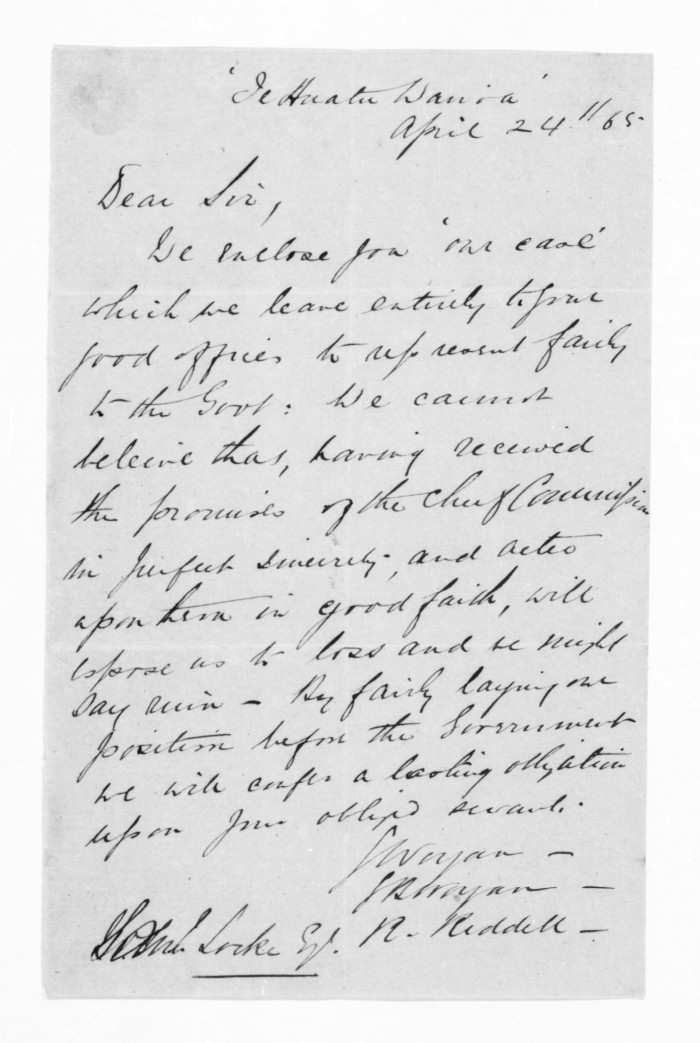 'Te Huatu Wairoa'
April 24th 65
Dear Sir,
We enclose you 'our case'
which we leave entirely to your
good offices to represent fairly
to the Govt: We cannot
beleive that, having received
the promises of the Chief Commissioner
in perfect sincerity, and acted
upon them in good faith, will
expose us to loss and we might
say ruin - By fairly laying our
position before the Government
we will confer a lasting obligation
upon your oblig'd servants.
R. Riddell -
Locke Esq.